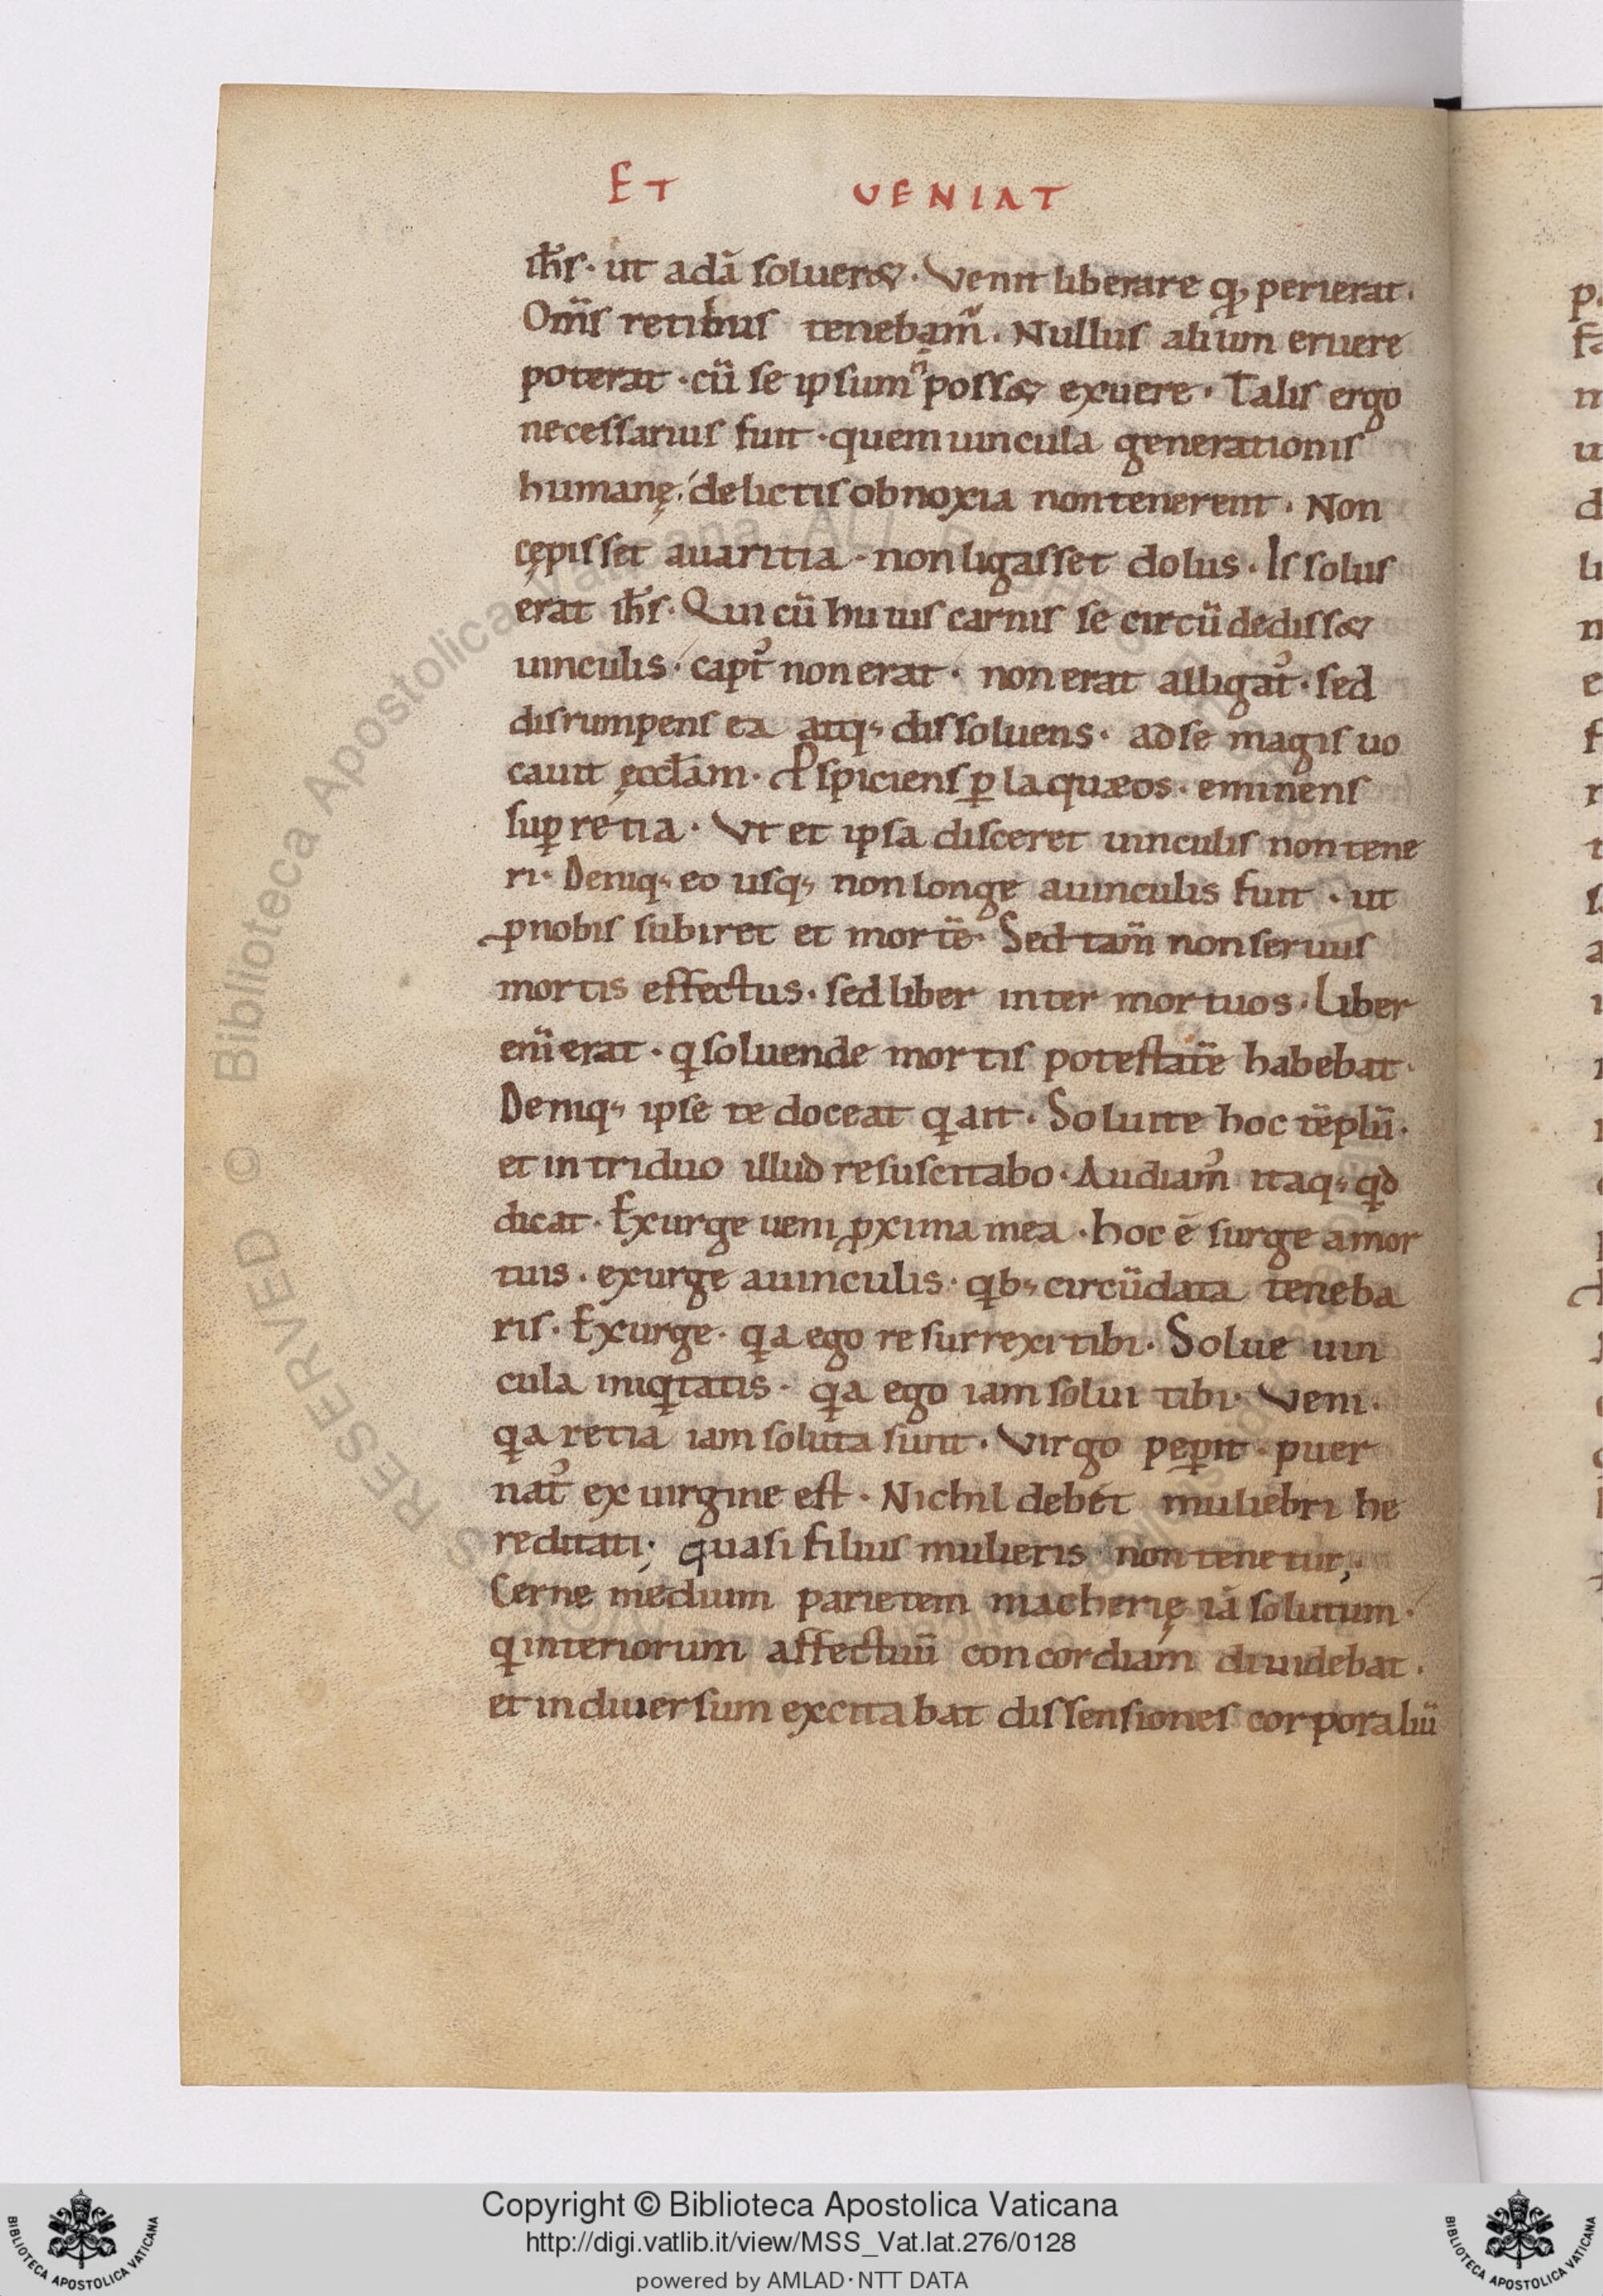 ET UENIAT
ih̅s· ut adā soluer&· Venit liberare qđ perierat·
Om̅s retibus tenebam᷒· Nullus alium eruere
poterat· cū se ipsum n̄ poss& exuere· Talis ergo
necessarius fuit· quem uincula generationis
humanę, delictis obnoxia non tenerent· Non
cępisset auaritia· non ligasset dolus· Is solus
erat ih̅s· Qui cū huius carnis se circūdediss&
uinculis· capt᷒ non erat· non erat alligat᷒· sed
disrumpens ea atq; dissoluens· ad se magis uo
cauit ęccl̅am· Ꝓspiciens ꝑ laquæos· eminens
suꝑ retia· Vt et ipsa disceret uinculis non tene
ri· Deniq; eo usq; non longe a uinculis fuit· ut
ꝓ nobis subiret et mortē· Sed tam̅ non seruus
mortis effectus· sed liber inter mortuos· Liber
eni̅ erat· q soluende mortis potestatē habebat·
Deniq; ipse te doceat q ait· Soluite hoc tēplū·
et in triduo illud resuscitabo· Audiam᷒ itaq; qd
dicat· Exurge ueni ꝓxima mea· hoc ē surge a mor
tuis· exurge a uinculis· qb; circūdata teneba
ris· Exurge· qa ego resurrexi tibi· Solue uin
cula iniqtatis· qa ego iam solui tibi· Veni·
qa retia iam soluta sunt· Virgo peꝑit· puer
nat᷒ ex uirgine est· Nichil debet muliebri he
reditati; quasi filius mulieris non tenetur;
Cerne medium parietem macherię iā solutum·
q interiorum affectuū concordiam diuidebat·
et in diuersum excitabat dissensiones corporaliū
Copyright © Biblioteca Apostolica Vaticana
http://digi.vatlib.it/view/MSS_Vat.lat.276/0128
powered by AMLAD·NTT DATA